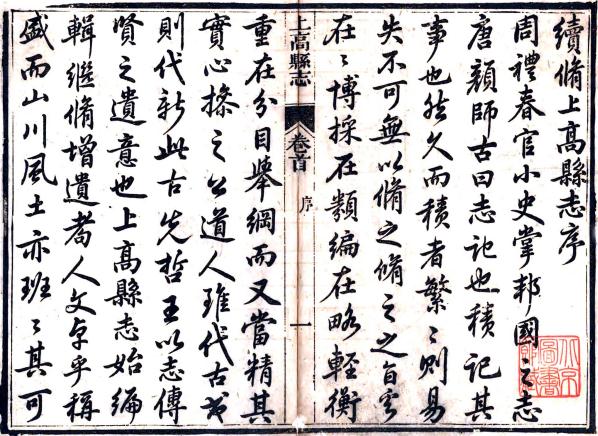 續脩上髙縣志序
周禮春官小史掌邦國之志
唐顔師古曰志記也積記其
事也然久而積者繁〻則易
失不可無以脩之脩之之旨安
在〻博採在類編在略輕衡
上高縣志
卷首
序
一
重在分目舉綱而又當精其
實心操之公道人雖代古或
則代新此古先哲王以志傳
賢之遺意也上髙縣志始編
輯繼脩增遺耆人文卓乎稱
盛而山川風土亦班〻其可